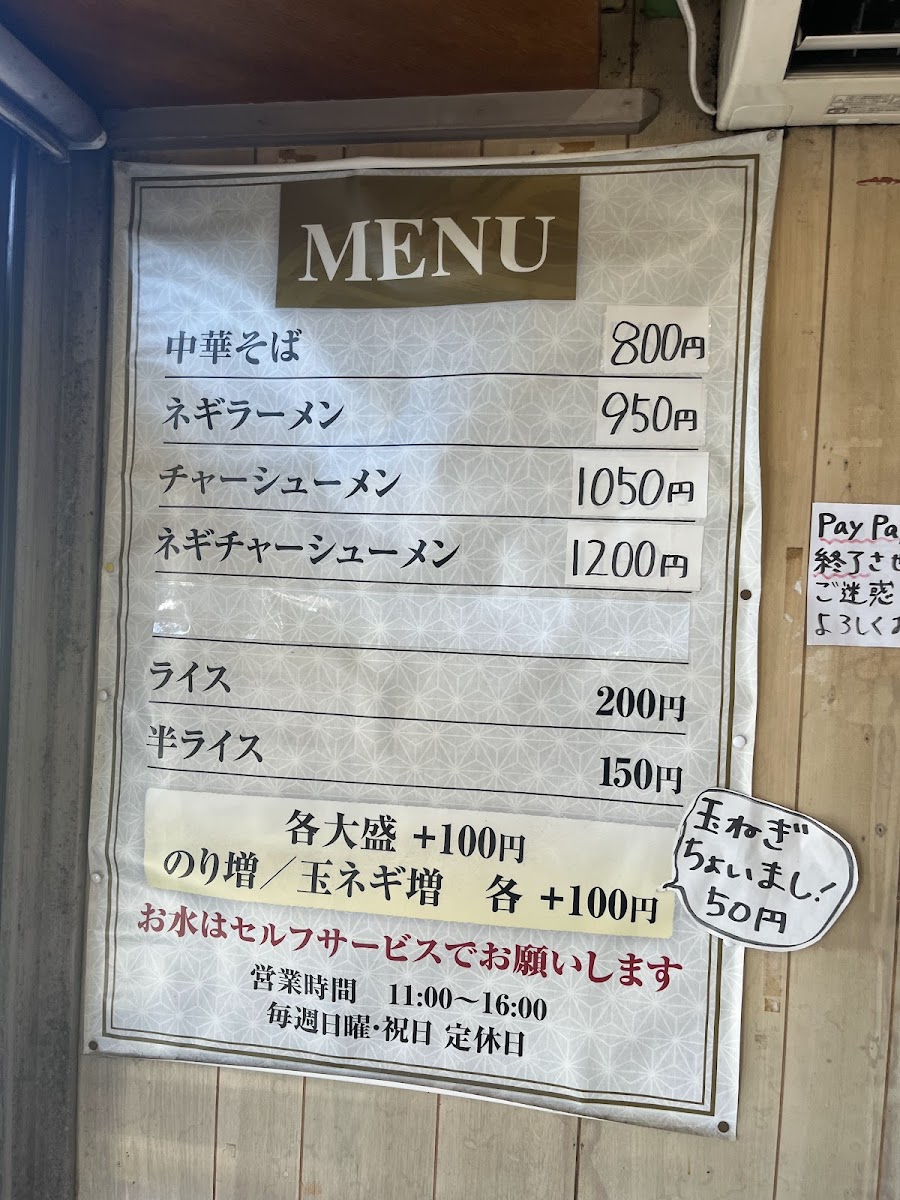 MENU
中華そば 800円
ネギラーメン 950円
チャーシューメン 1050円
ネギチャーシューメン 1200円
ライス 200円
半ライス 150円
各大盛 +100円
のり増／玉ネギ増 各 +100円
玉ねぎ
ちょいまし!
50円
お水はセルフサービスでお願いします
営業時間 11:00〜16:00
毎週日曜・祝日 定休日
Pay Pa
終了させ
ご迷惑
よろしくお